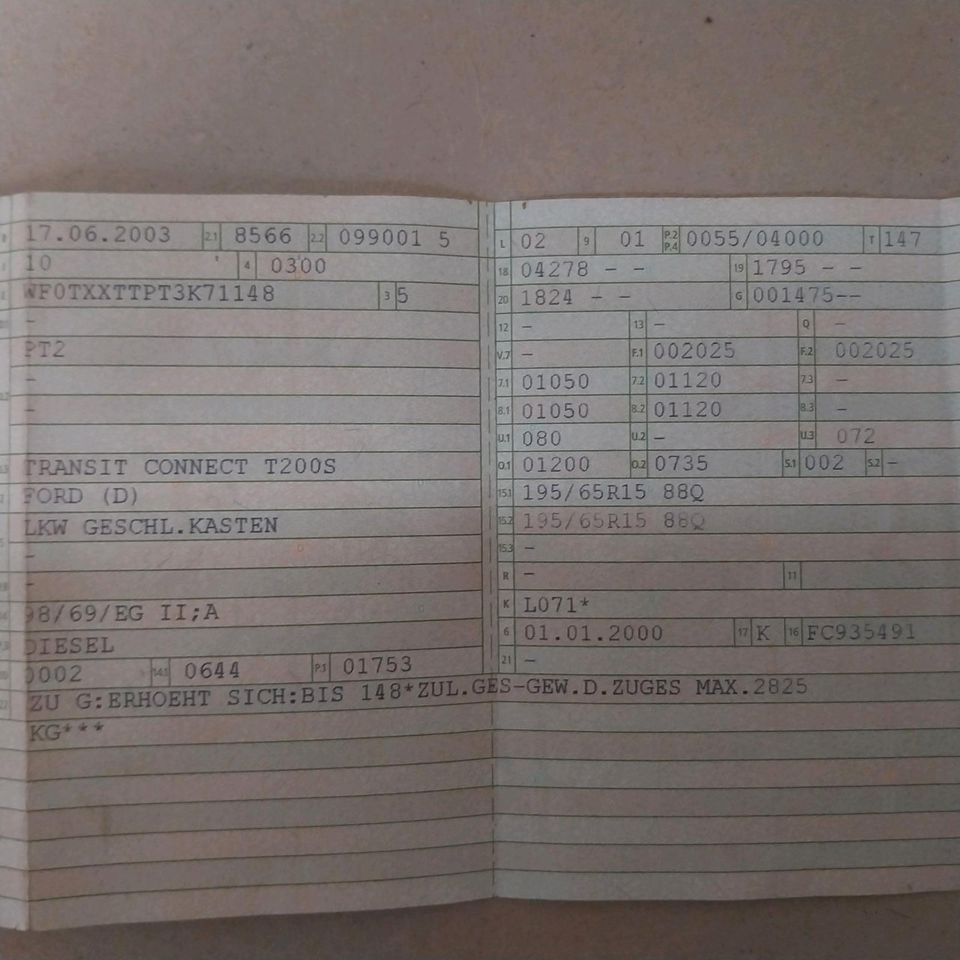 17.06.2003 2.1 8566 2.2 099001 5
10 4 0300
WF0TXXTTPT3K71148 3 5
-
PT2
-
-
TRANSIT CONNECT T200S
FORD (D)
LKW GESCHL.KASTEN
-
-
98/69/EG II;A
DIESEL
0002 14.1 0644 P.1 01753
L 02 9 01 P.2 P.4 0055/04000 T 147
18 04278 - - 19 1795 - -
20 1824 - - G 001475--
12 - 13 - Q -
V.7 - F.1 002025 F.2 002025
7.1 01050 7.2 01120 7.3 -
8.1 01050 8.2 01120 8.3 -
U.1 080 U.2 - U.3 072
O.1 01200 O.2 0735 S.1 002 S.2 -
15.1 195/65R15 88Q
15.2 195/65R15 88Q
15.3 -
R - 11
K L071*
6 01.01.2000 17 K 16 FC935491
21 -
22 ZU G:ERHOEHT SICH:BIS 148*ZUL.GES-GEW.D.ZUGES MAX.2825
KG***